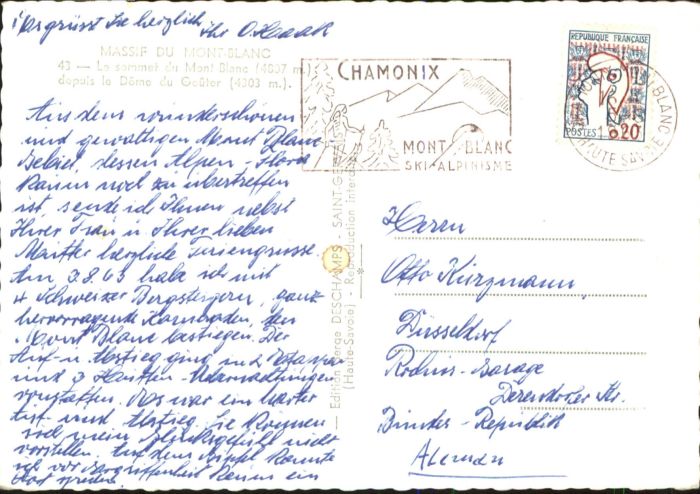 ihr O. Haak
grüsst Sie herzlich
MASSIF DU MONT-BLANC
43 — Le sommet du Mont Blanc (4807 m.)
depuis le Dôme du Goûter (4303 m.).
Aus dem wunderschönen
und gewaltigen Mont Blanc
Gebiet, dessen Alpen-Flora
kaum noch zu übertreffen
ist, sende ich Ihnen nebst
Ihrer Frau u. Ihrer lieben
Mutter herzliche Feriengrüsse.
Am 3.8.65 habe ich mit
4 Schweizer Bergsteigern, ganz
hervorragende Kameraden, den
Mont Blanc bestiegen. Der
Auf- u. Abstieg ging in 2
und 3 Hütten-Übernachtungen
vonstatten. Das war ein harter
Auf- und Abstieg. Sie können
sich mein Glücksgefühl nicht
vorstellen. Auf dem Gipfel konnte
ich vor Ergriffenheit kaum ein
Wort
CHAMONIX
MONT-BLANC
SKI-ALPINISME
REPUBLIQUE FRANÇAISE
POSTES
0,20
BLANC
HAUTE SAVOIE
Edition Serge DESCHAMPS - SAINT-GERVAIS
(Haute-Savoie) - Reproduction interdite
Herrn
Otto Kürzmann,
Düsseldorf
Derendorfer Str.
Bundes-Republik
Aleman